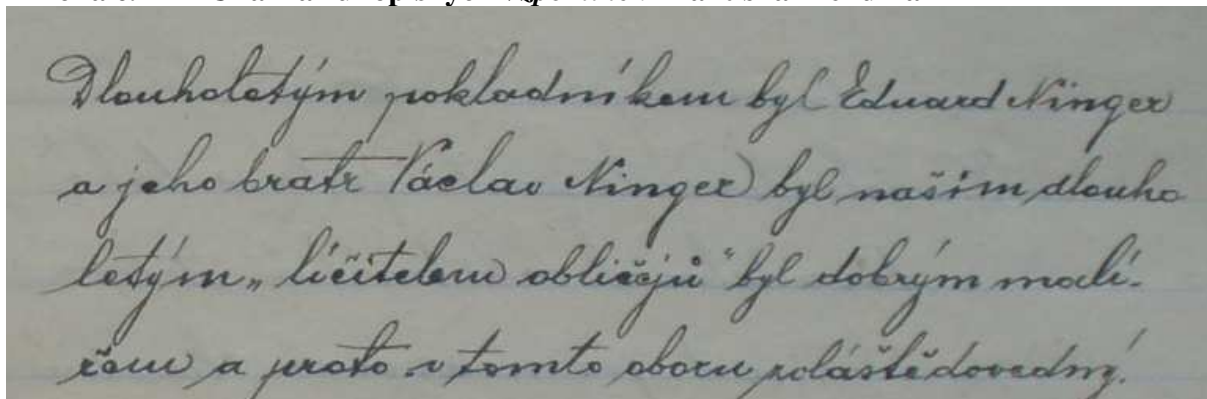 Dlouholetým pokladníkem byl Eduard Ninger
a jeho bratr Václav Ninger byl naším dlouho
letým „líčitelem obličejů“ byl dobrým malí-
řem a proto v tomto oboru zvláště dovedný.